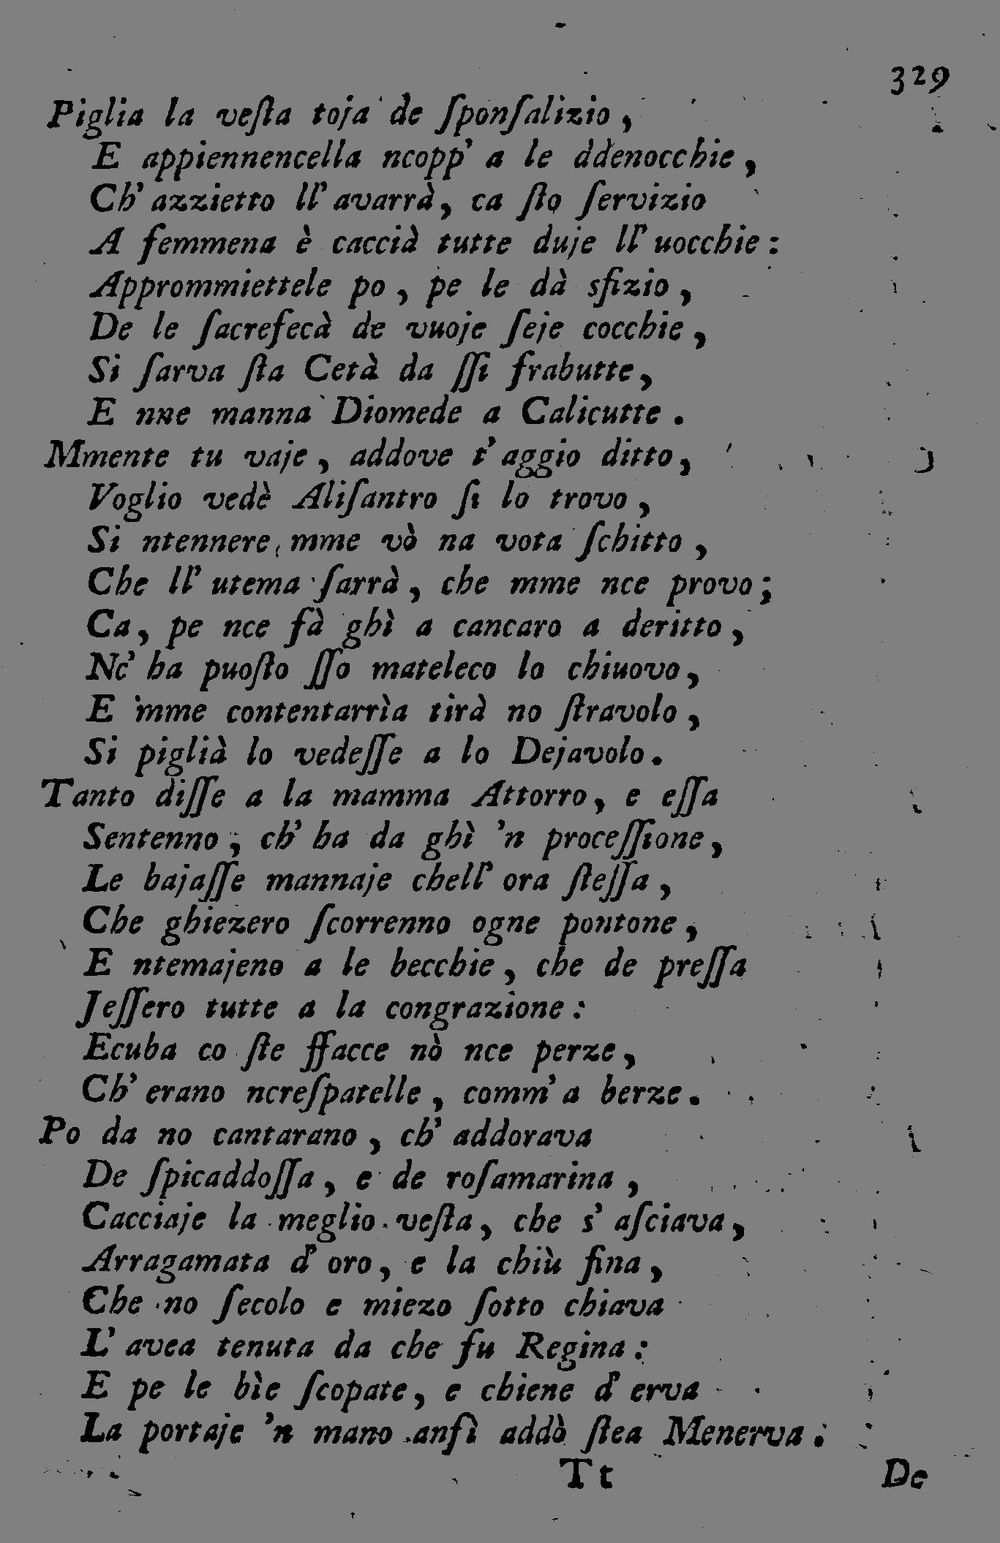 329
Piglia la veſta toja de ſponſalizio,
E appiennencella ncopp' a le ddenocchie,
Ch' azzietto ll' avarrà, ca ſto ſervizio
A femmena è caccià tutte duje ll' uocchie:
Apprommiettele po, pe le dà sfizio,
De le ſacrefecà de vuoje ſeje cocchie,
Si ſarva ſta Cetà da ſſi frabutte,
E nne manna Diomede a Calicutte.
Mmente tu vaje, addove t' aggio ditto,
Voglio vedè Aliſantro ſi lo trovo,
Si ntennere mme vò na vota ſchitto,
Che ll' utema ſarrà, che mme nce provo;
Ca, pe nce fà ghì a cancaro a deritto,
Nc' ha puoſto ſſo mateleco lo chiuovo,
E mme contentarrìa tirà no ſtravolo,
Si piglià lo vedeſſe a lo Dejavolo.
Tanto diſſe a la mamma Attorro, e eſſa
Sentenno, ch' ha da ghì 'n proceſſione,
Le bajaſſe mannaje chell' ora ſteſſa,
Che ghiezero ſcorrenno ogne pontone,
E ntemajeno a le becchie, che de preſſa
Jeſſero tutte a la congrazione:
Ecuba co ſte ffacce nò nce perze,
Ch' erano ncreſpatelle, comm' a berze.
Po da no cantarano, ch' addorava
De ſpicaddoſſa, e de roſamarina,
Cacciaje la meglio veſta, che s' aſciava,
Arragamata d' oro, e la chiù fina,
Che no ſecolo e miezo ſotto chiava
L' avea tenuta da che fu Regina:
E pe le bìe ſcopate, e chiene d' erva
La portaje 'n mano anſì addò ſtea Menerva:
Tt De